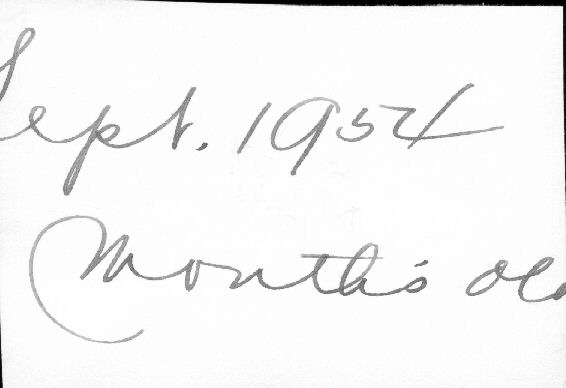 Sept. 1954
Month's old